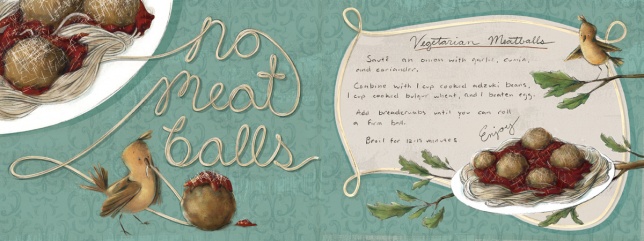 no
meat
balls
Vegetarian Meatballs
Sauté an onion with garlic, cumin,
and coriander.
Combine with 1 cup cooked adzuki beans,
1 cup cooked bulgur wheat, and 1 beaten egg.
Add breadcrumbs until you can roll
a firm ball.
Broil for 12-15 minutes
Enjoy